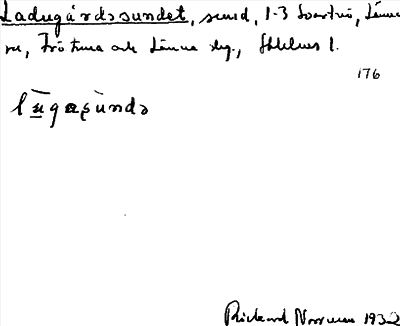 Ladugårdssundet, sund, 1-3 Svartnö, Länna
sn, Frötuna och Länna skg., Sthlms l.
176
Rickard Norrman 1932